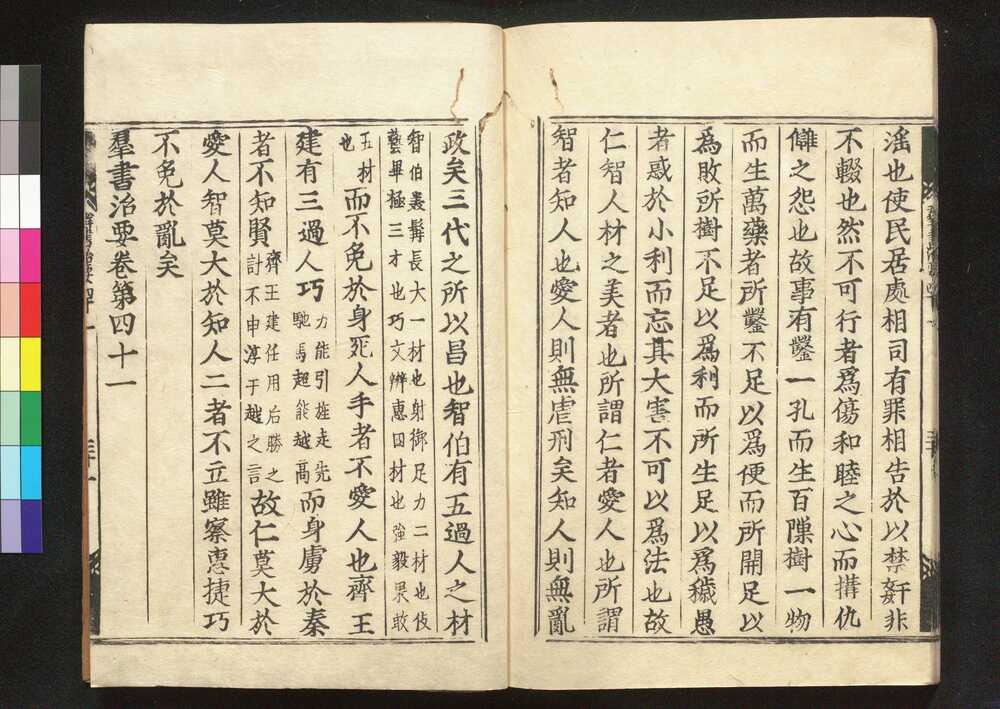 滛也使民居處相司有罪相告於以禁姧非
不輟也然不可行者爲傷和睦之心而搆仇
讎之怨也故事有鑿一孔而生百隟樹一物
而生萬蘂者所鑿不足以爲便而所開足以
爲敗所樹不足以爲利而所生足以爲穢愚
者惑於小利而忘其大害不可以爲法也故
仁智人材之美者也所謂仁者愛人也所謂
智者知人也愛人則無虐刑矣知人則無亂
政矣三代之所以昌也智伯有五過人之材
智伯美髯長大一材也射御足力二材也伎
藝畢極三才也巧文辨惠四材也強毅果敢
五材
也
而不免於身死人手者不愛人也齊王
建有三過人巧
力能引強走先
馳馬超能越高
而身虜於秦
者不知賢
齊王建任用后勝之
計不申淳于越之言
故仁莫大於
愛人智莫大於知人二者不立雖察惠捷巧
不免於亂矣
羣書治要卷第四十一